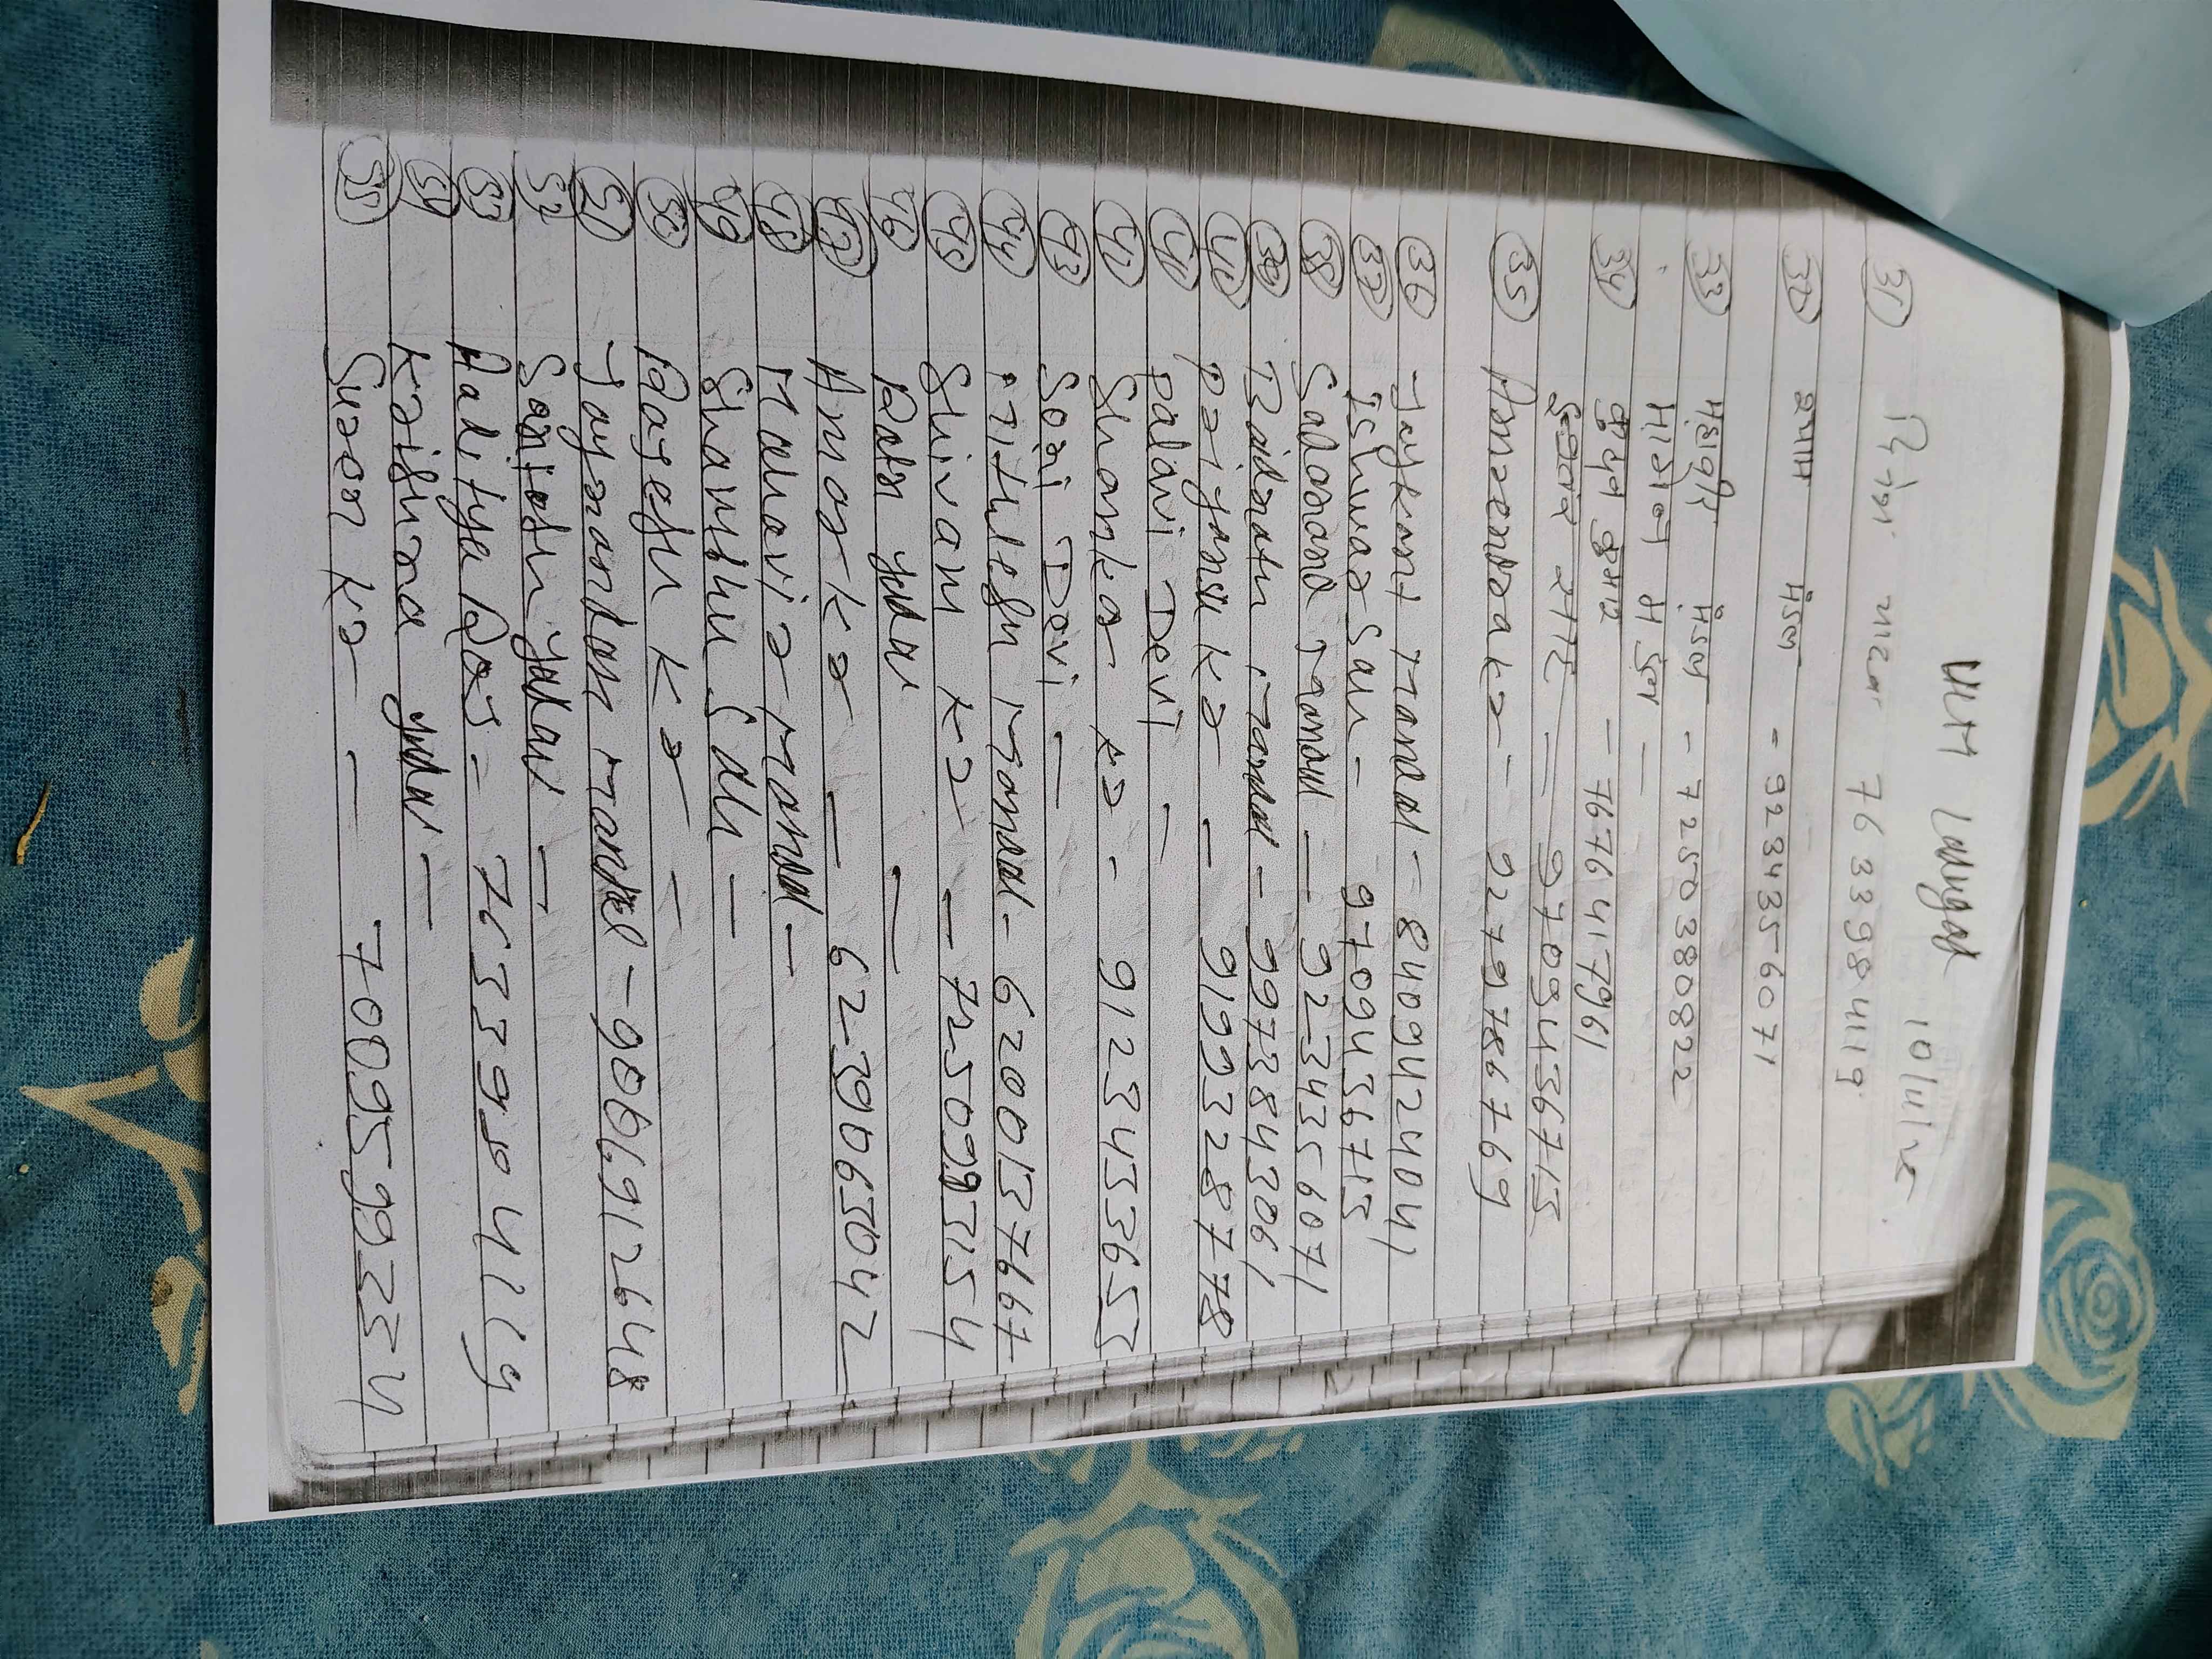 10/4/12
31 7633984119
32 श्याम मंडल - 9234356071
33 महावीर मंडल - 7250380822
मोहन मंडल -
34 कुंदन कुमार - 7676417961
35 - 9709436715
Amrendra kr - 2279786769
36 Jaykant Mandal - 8409424041
37 Ishwar Sah - 9709436715
38 Sadanand Mandal - 9234356071
39 Baidnath Mandal - 9973843061
40 Priyansu kr - 9199328778
41 Palavi Devi -
42 Shankar kr - 9123453365
43 Soni Devi -
44 Mithlesh Mandal - 6200137667
45 Shivam kr - 7250997154
46 yadav -
47 Aman kr - 6239065042
48 Mahavir Mandal -
49 Shambhu Sah -
50 Rajesh kr -
51 Jaynandan Mandal - 9006912648
52 Santosh yadav -
53 Aaditya Raj - 7633984119
54 Krishna yadav -
55 kr - 7009599334